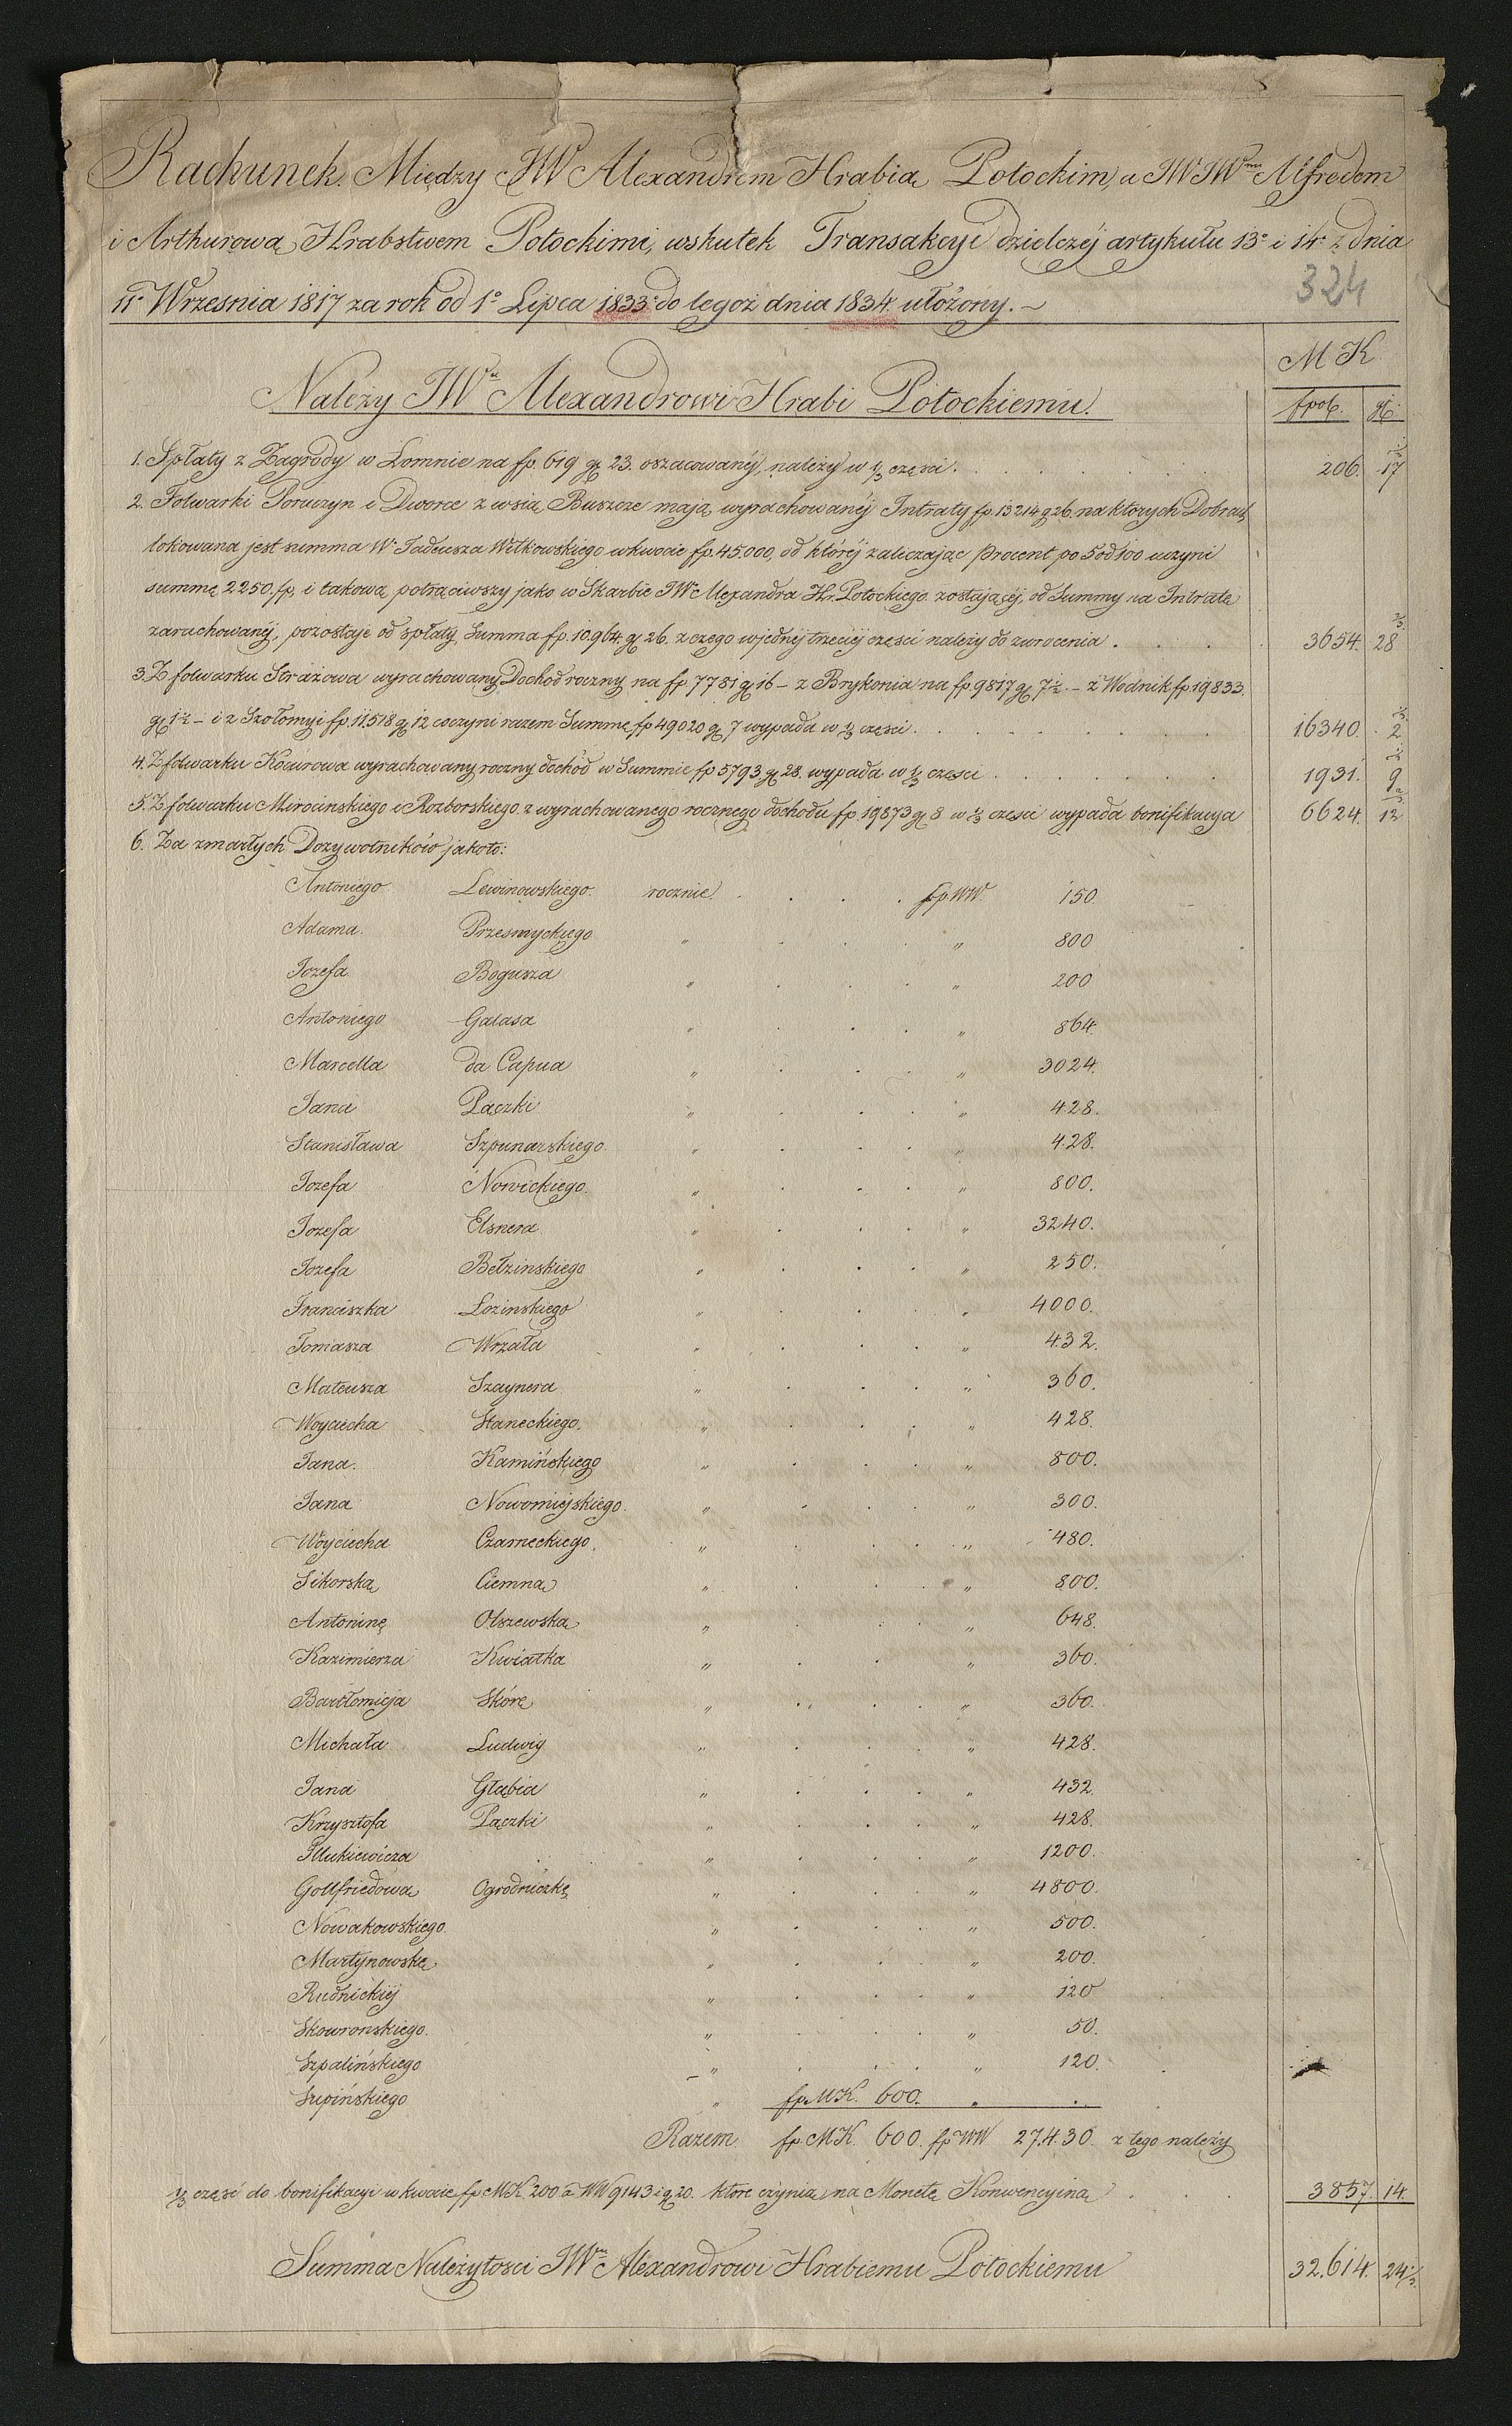 Rachunek. Między JW Alexandrem Hrabią Potockim, a JWJWmi Alfredem
i Arthurową Hrabstwem Potockimi, wskutek Transakcyi dzielczéj artykułu 13o i 14o z dnia
324
11o Wrzesnia 1817 za rok od 1o Lipca 1833o do tegoż dnia 1834. ułożony. –
M K
Należy JWu Alexandrowi Hrabi Potockiemu.
fpol. gr.
1. Spłaty z Zagrody w Łomnie na fp. 619 gr 23. oszacowanéj, należy w 1/3 części . 206. 17 1/2
2. Folwarki Poruczyn i Dworce z wsią Buszcze mają wyrachowanéj Intraty fp. 13214 g 26. na których Dobrach
lokowana jest summa Wo Tadeusza Wetkowskiego w kwocie fp. 45.000, od któréj zaliczając procent po 5 od 100 uczyni
summę 2250. fp. i takową potrąciwszy jako w Skarbie JWo Alexandra Hr. Potockiego zostającéj, od Summy na Intratę
zarachowanéj, pozostaje od spłaty Summa fp. 10.964 gr 26. z czego w jednéj trzeciéj części należy do zwrocenia . 3654. 28 2/3
3. Z folwarku Strażowa wyrachowany Dochod roczny na fp. 7781 gr 16 – z Brykonia na fp. 9817 gr 7 1/2. – z Wodnik fp. 19833.
gr 1 1/2 – i z Szołomyi fp. 11.518 gr 12 co czyni razem Summę fp 49020 gr 7 wypada w 1/3 części . 16340. 2 1/3
4. Z folwarku Kocurowa wyrachowany roczny dochód w Summie fp 5793 gr 28. wypada w 1/3 części 1931. 9 1/3
5. Z folwarku Mirocinskiego i Rozborskiego z wyrachowanego rocznego dochodu fp 19873 gr 8 w 1/3 części wypada bonifikacya 6624. 12 2/3
6. Za zmarłych Dozywotników jakoto:
Antoniego Lewinowskiego. rocznie . fp WW. 150.
Adama. Przesmyckiego " " 800
Jozefa Bogusza " " 200
Antoniego Galasa " " 864.
Marcella da Capua " " 3024.
Jana Pączki " " 428.
Stanisława Szpunarskiego " " 428.
Jozefa Nowickiego. " " 800.
Jozefa Elsnera " " 3240.
Jozefa Bełzinskiego " " 250.
Franciszka Łozinskiego " " 4000.
Tomasza Wrzała " " 432.
Mateusza Szaynera " " 360.
Woyciecha Staneckiego. " " 428.
Jana. Kamińskiego " " 800.
Jana Nowomiejskiego. " " 300.
Woyciecha Czarneckiego. " " 480.
Sikorską Ciemną " " 800.
Antoninę Olszewską " " 648.
Kazimierza Kwiatka " " 360.
Bartłomieja Skórę " " 360.
Michała Ludwig " " 428.
Jana Głąbia " " 432.
Krzysztofa Pączki " " 428.
Illukiewicza " " 1200.
Gottfriedową Ogrodniczkę " " 4800.
Nowakowskiego " " 500.
Martynowską " " 200.
Rudnickiéj " " 120
Skowronskiego. " " 50.
Szpalińskiego " " 120.
Szepińskiego " fp. MK. 600. " .
Razem fp. MK. 600. fp WW 27.430. z tego należy
1/3 część do bonifikacyi w kwocie fp MK. 200 a WW 9143 i gr 20. ktore czynią na Monetę Konwencyiną 3857. 14.
Summa Należytości JWu Alexandrowi Hrabiemu Potockiemu 32.614. 24 1/2